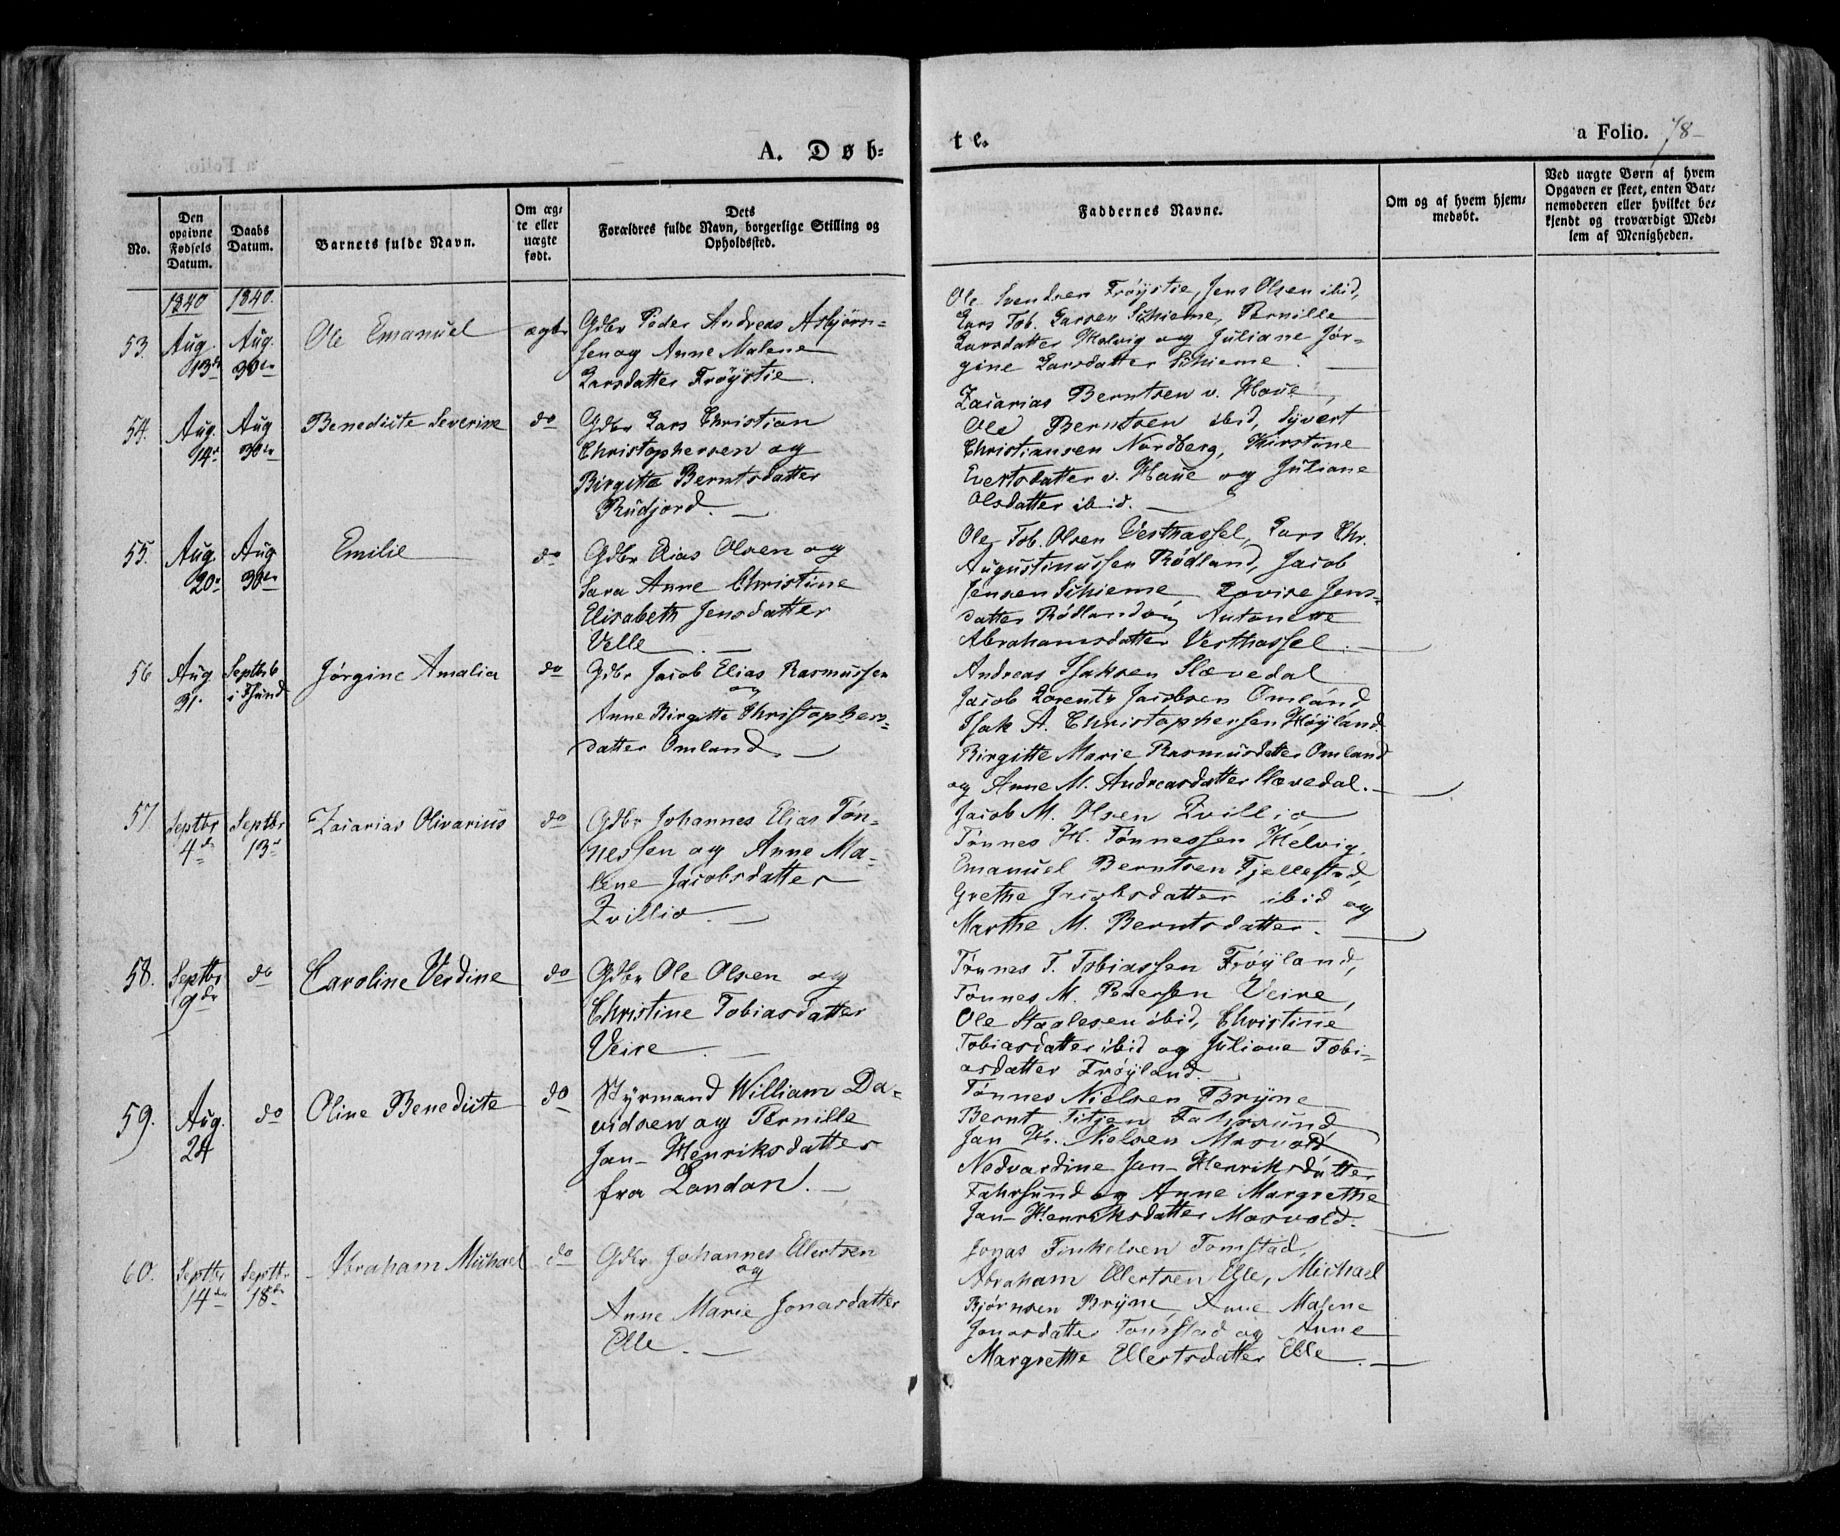 A. Døb-
te.
a Folio. 78
No.
Den opgivne Fødsels Datum.
Daabs Datum.
Barnets fulde Navn.
Om ægte eller uægte født.
Dets Forældres fulde Navn, borgerlige Stilling og Opholdssted.
Faddernes Navne.
Om og af hvem hjemmedøbt.
Ved uægte Børn af hvem Opgaven er skeet, enten Barnemoderen eller hvilket bekjendt og troværdigt Medlem af Menigheden.
1840 1840.
53. Aug. 13de Aug. 30te Ole Emanuel ægte
Gdbr Peder Andreas Asbjørn-
sen og Anne Malene
Larsdatter Frøystie.
Ole Svendsen Frøystie, Jens Olsen ibid,
Lars Tob. Larsen Skieme, Pernille
Larsdatter Helvig og Juliane Jør-
gine Larsdatter Skieme.
54. Aug. 14d Aug 30te Benedicte Severine do
Gdbr Lars Christian
Christophersen og
Birgitte Berntsdatter
Rudjord.
Zacarias Berntsen v. Haue,
Ole Berntsen ibid, Syvert
Christiansen Nordberg, Kirstine
Evertsdatter v. Haue og Juliane
Olsdatter ibid.
55. Aug. 20de Aug 30te Emilie do
Gdbr Elias Olsen og
Sara Anne Christine
Elisabeth Jensdatter
Velle
Ole Tob. Olsen Vesthassel, Lars Chr.
Augustinussen Rødland, Jacob
Jensen Skieme, Lovise Jens-
datter Rødland og Antonette
Abrahamsdatter Vesthassel.
56 Aug 31. Septbr 6 i Fsund Jørgine Amalia do
Gdbr Jacob Elias Rasmussen
og
Anne Birgitte Christophers-
datter Omland.
Andreas Isaksen Slævedal
Jacob Lorents Jacobsen Omland,
Isak A. Christophersen Høyland
Birgitte Marie Rasmusdatter Omland
og Anne M. Andreasdatter Slævedal.
57 Septbr 4de Septbr 13d Zacarias Olivarius do
Gdbr Johannes Elias Tøn-
nessen og Anne Ma-
lene Jacobsdatter
Zvillia.
Jacob M. Olsen Zvillia
Tønnes H. Tønnessen Helvig,
Emanuel Berntsen Fjellestad,
Grethe Jacobsdatter ibid og
Marthe M. Berntsdatter.
58. Septbr 9de do Caroline Verdine do
Gdbr Ole Olsen og
Christine Tobiasdatter
Veire
Tønnes T. Tobiassen Frøyland,
Tønnes M. Pedersen Veire,
Ole Staalesen ibid, Christine
Tobiasdatter ibid og Juliane Tobi-
asdatter Frøyland.
59. Aug. 24 do Oline Benedicte do
Styrmand William Da-
vidsen og Pernille
Jan-Henriksdatter
fra London.
Tønnes Nielsen Bryne
Bernt Titjen Fahrsund
Jan H. Nielsen Mosvold
Nedvardine Jan-Henriksdatter
Fahrsund og Anne Margrethe
Jan-Henriksdatter Mosvold.
60. Septbr 14de Septbr 18de Abraham Michael do
Gdbr Johannes Ellertsen
og
Anne Marie Jonasdatter
Elle.
Jonas Finkelsen Tomstad,
Abraham Ellertsen Elle, Michael
Bjørnsen Bryne, Anne Malene
Jonasdatter Tomstad og Anne
Margrethe Ellertsdatter Elle.